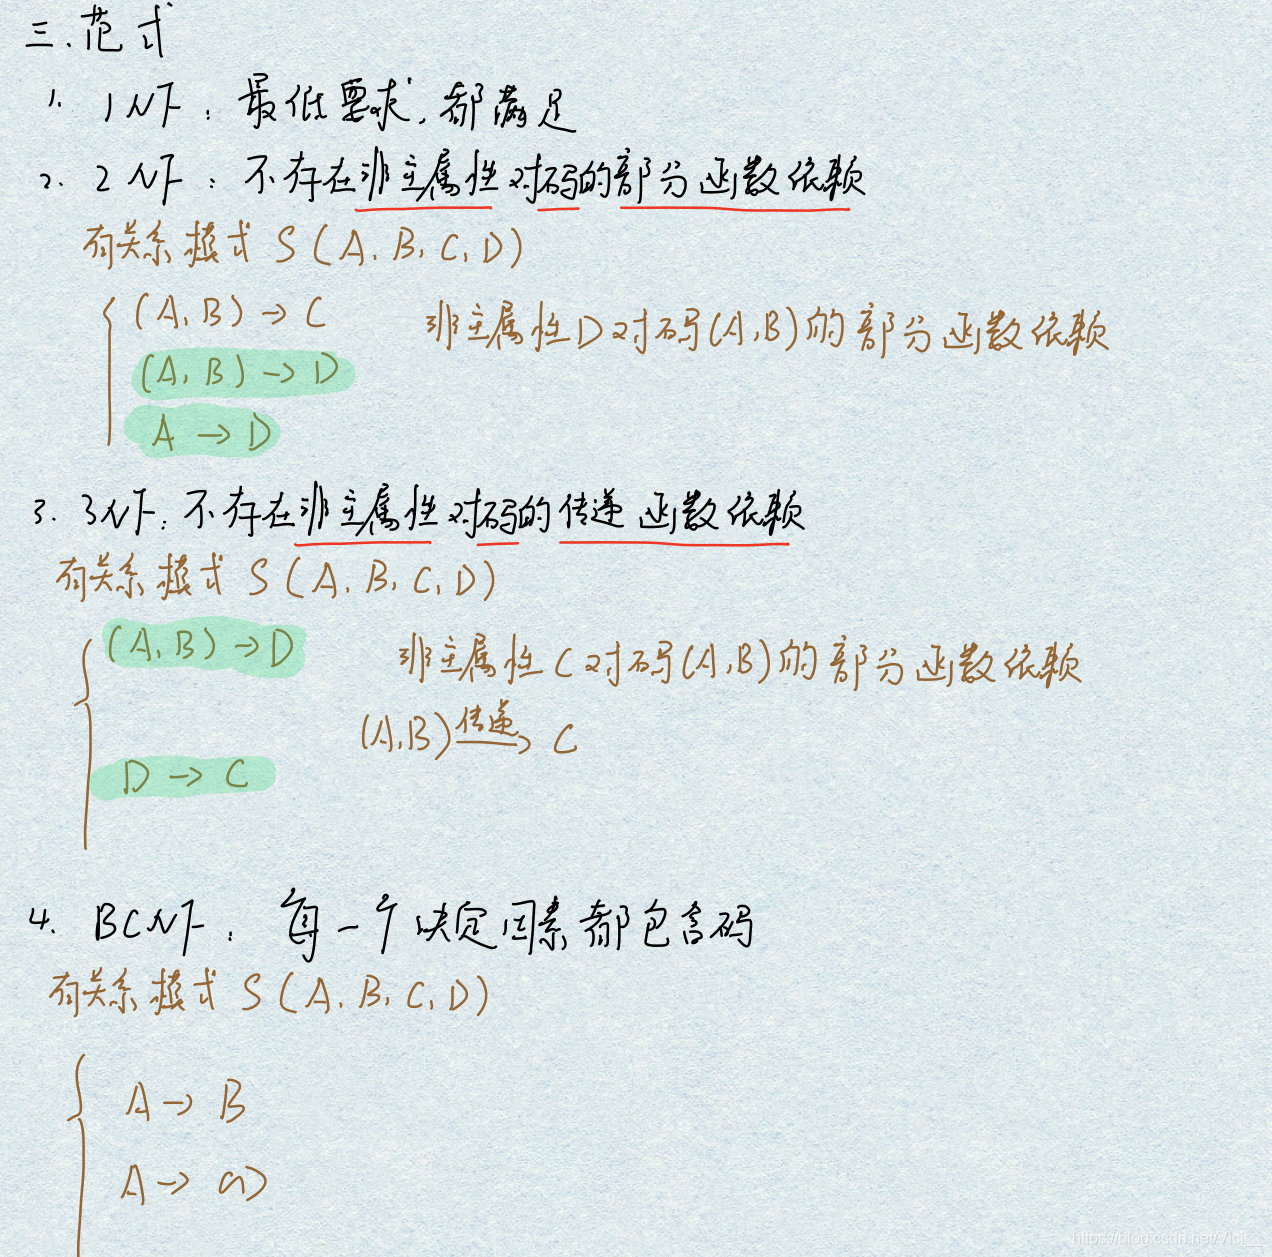 三.范式
1. 1NF：最低要求,都满足
2. 2NF：不存在非主属性对码的部分函数依赖
有关系模式 S(A,B,C,D)
(A,B)→C 非主属性D对码(A,B)的部分函数依赖
(A,B)→D
A→D
3. 3NF：不存在非主属性对码的传递函数依赖
有关系模式 S(A,B,C,D)
(A,B)→D 非主属性C对码(A,B)的部分函数依赖
(A,B) 传递→ C
D→C
4. BCNF：每一个决定因素都包含码
有关系模式 S(A,B,C,D)
A→B
A→
https://blog.csdn.net/Vici__